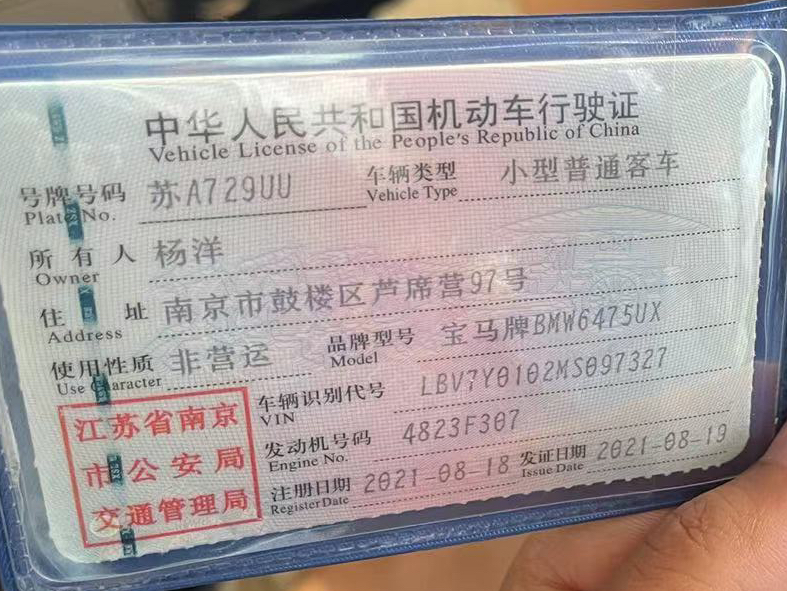 中华人民共和国机动车行驶证
Vehicle License of the People's Republic of China
号牌号码 苏A729UU 车辆类型 小型普通客车
Plate No. Vehicle Type
所有人 杨洋
Owner
住址 南京市鼓楼区芦席营97号
Address
使用性质 非营运 品牌型号 宝马牌BMW6475UX
Use Character Model
江苏省南京
市公安局
交通管理局
车辆识别代号 LBV7Y0102MS097327
VIN
发动机号码 4823F307
Engine No.
注册日期 2021-08-18 发证日期 2021-08-19
Register Date Issue Date